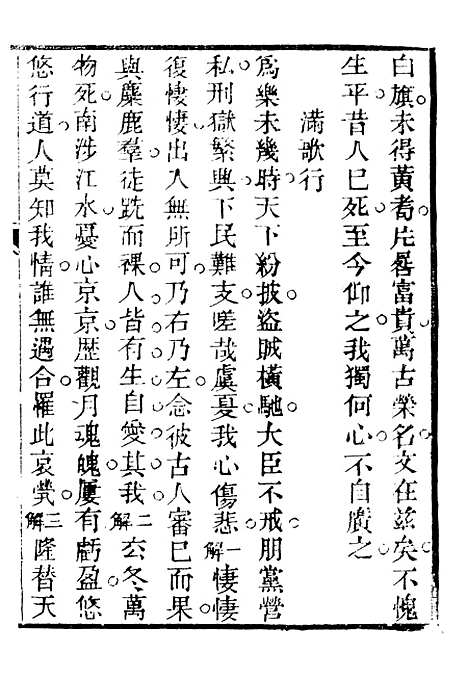 白旗未得黃耈片晷富貴萬古榮名文在茲矣不愧
生平昔人已死至今仰之我獨何心不自廣之
滿歌行
爲樂未幾時天下紛披盜賊橫馳大臣不戒朋黨營
私刑獄繁興下民難支嗟哉虞夏我心傷悲一解悽悽
復悽悽出入無所可乃右乃左念彼古人審已而果
與麋鹿羣徒跣而裸人皆有生自愛其我二解玄冬萬
物死南涉江水憂心京京歷觀月魂魄屢有虧盈悠
悠行道人莫知我情誰無遇合羅此哀煢三解隆替天